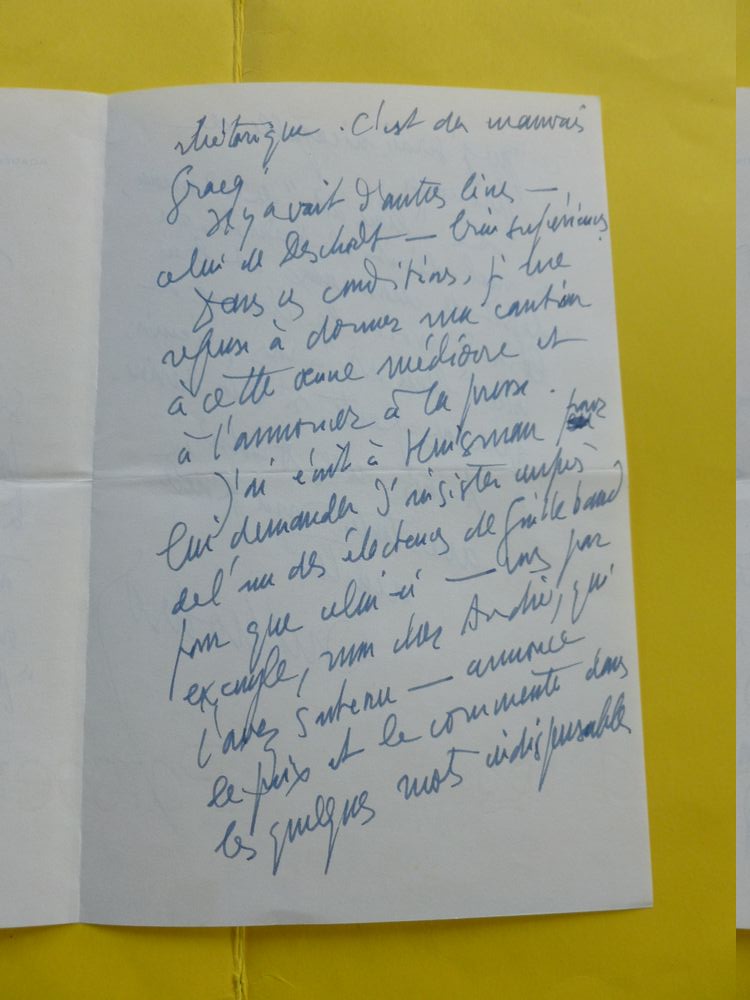 rhétorique. C'est du mauvais
Gracq.
Il y avait d'autres livres —
celui de Descholt — bien supérieurs.
Dans ces conditions, je me
refuse à donner ma caution
à cette œuvre médiocre et
à l'annoncer à la presse.
J'ai écrit à Huisman pour
lui demander d'insister auprès
de l'un des électeurs de Guillebaud
pour que celui-ci — vous par
exemple, mon cher André, qui
l'avez soutenu — annonce
le prix et le commente dans
les quelques mots indispensables